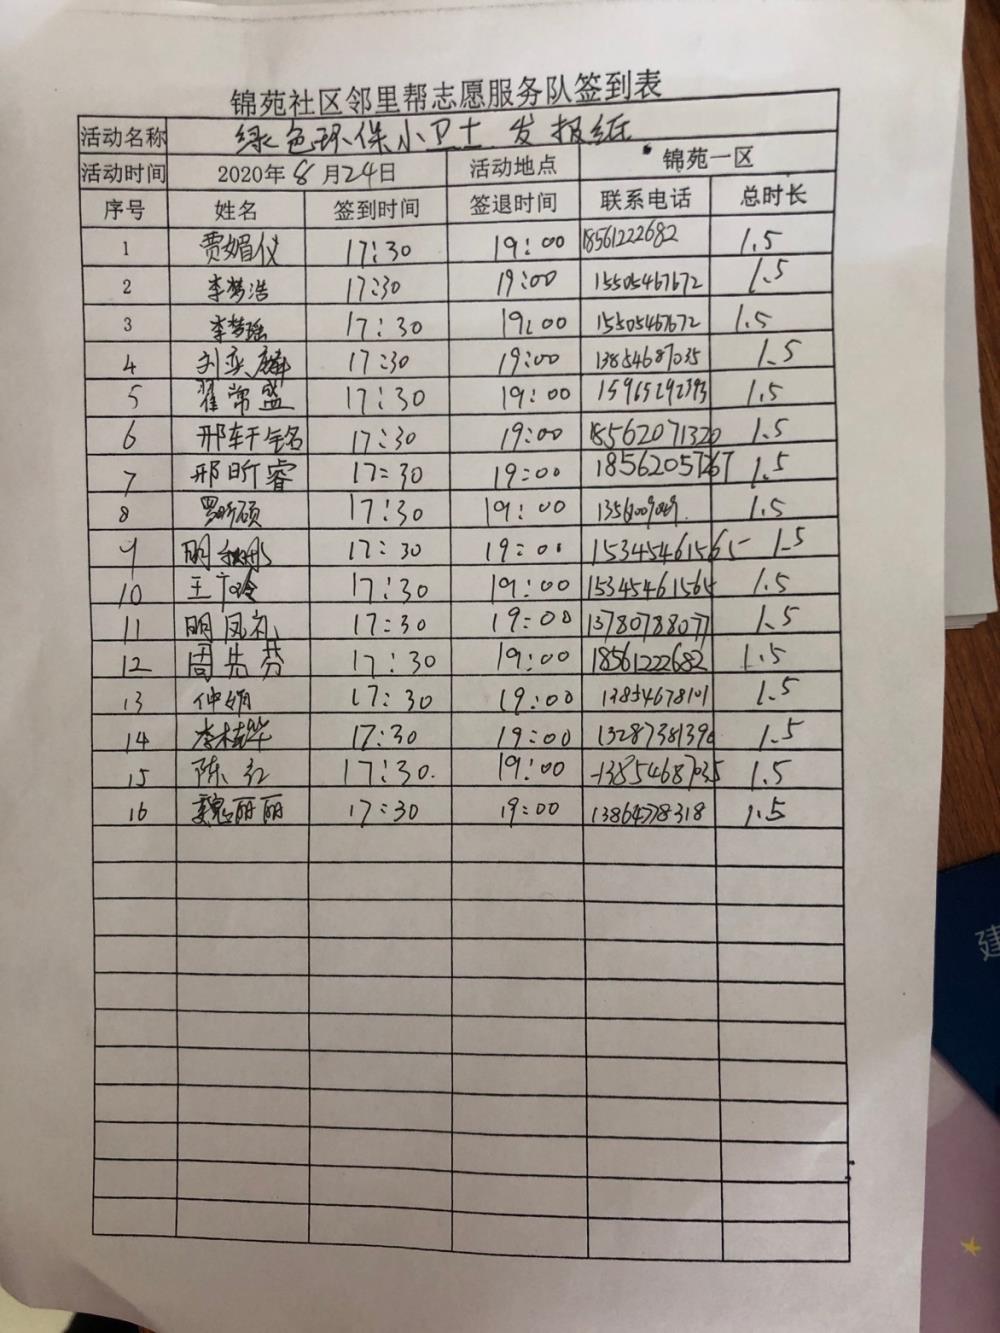 锦苑社区邻里帮志愿服务队签到表
活动名称 绿色环保小卫士 发报纸
活动时间 2020年8月24日 活动地点 锦苑一区
序号 姓名 签到时间 签退时间 联系电话 总时长
1 贾媚仪 17:30 19:00 18561222682 1.5
2 李梦浩 17:30 19:00 15505467672 1.5
3 李梦瑶 17:30 19:00 15505467672 1.5
4 刘奕麟 17:30 19:00 13854687035 1.5
5 翟常盛 17:30 19:00 15965292393 1.5
6 邢轩铭 17:30 19:00 18562071320 1.5
7 邢昕睿 17:30 19:00 18562057267 1.5
8 罗昕硕 17:30 19:00 1.5
9 明 17:30 19:00 15345461565 1.5
10 王 17:30 19:00 15345461565 1.5
11 明凤礼 17:30 19:00 13780788077 1.5
12 周先芬 17:30 19:00 18561222682 1.5
13 仲娟 17:30 19:00 13854678101 1.5
14 李桂华 17:30 19:00 1.5
15 陈红 17:30 19:00 13854687035 1.5
16 魏丽丽 17:30 19:00 13864778318 1.5
建